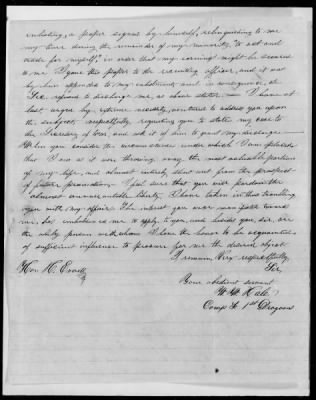 enlisting, a paper signed by himself, relinquishing to me
my time during the remainder of my minority, "to act and
trade for myself," in order that my earnings might be secured
to me. I gave this paper to the recruiting officer, and it was
by him appended to my enlistment and in consequence, of
this, refuse to discharge me, as above stated. I have at
last urged by extreme necessity, ventured to address you upon
the subject, respectfully requesting you to state my case to
the Secretary of War, and ask it of him to grant my discharge
When you consider the circumstances under which I am placed
that I am as it were throwing away the most valuable portion
of my life, and almost entirely shut out from the prospect
of future promotion, I feel sure that you will pardon the
almost unwarrantable liberty I have taken in thus troubling
you with my affairs. The interest you ever manifested toward
me, has emboldened me to apply to you, and besides you, sir, are
the only person with whom I have the honor to be acquainted
of sufficient influence to procure for me the desired object.
I remain, Very respectfully,
Sir,
Hon. H. Everett
Your obedient servant
Hale
Comp 1st Dragoons